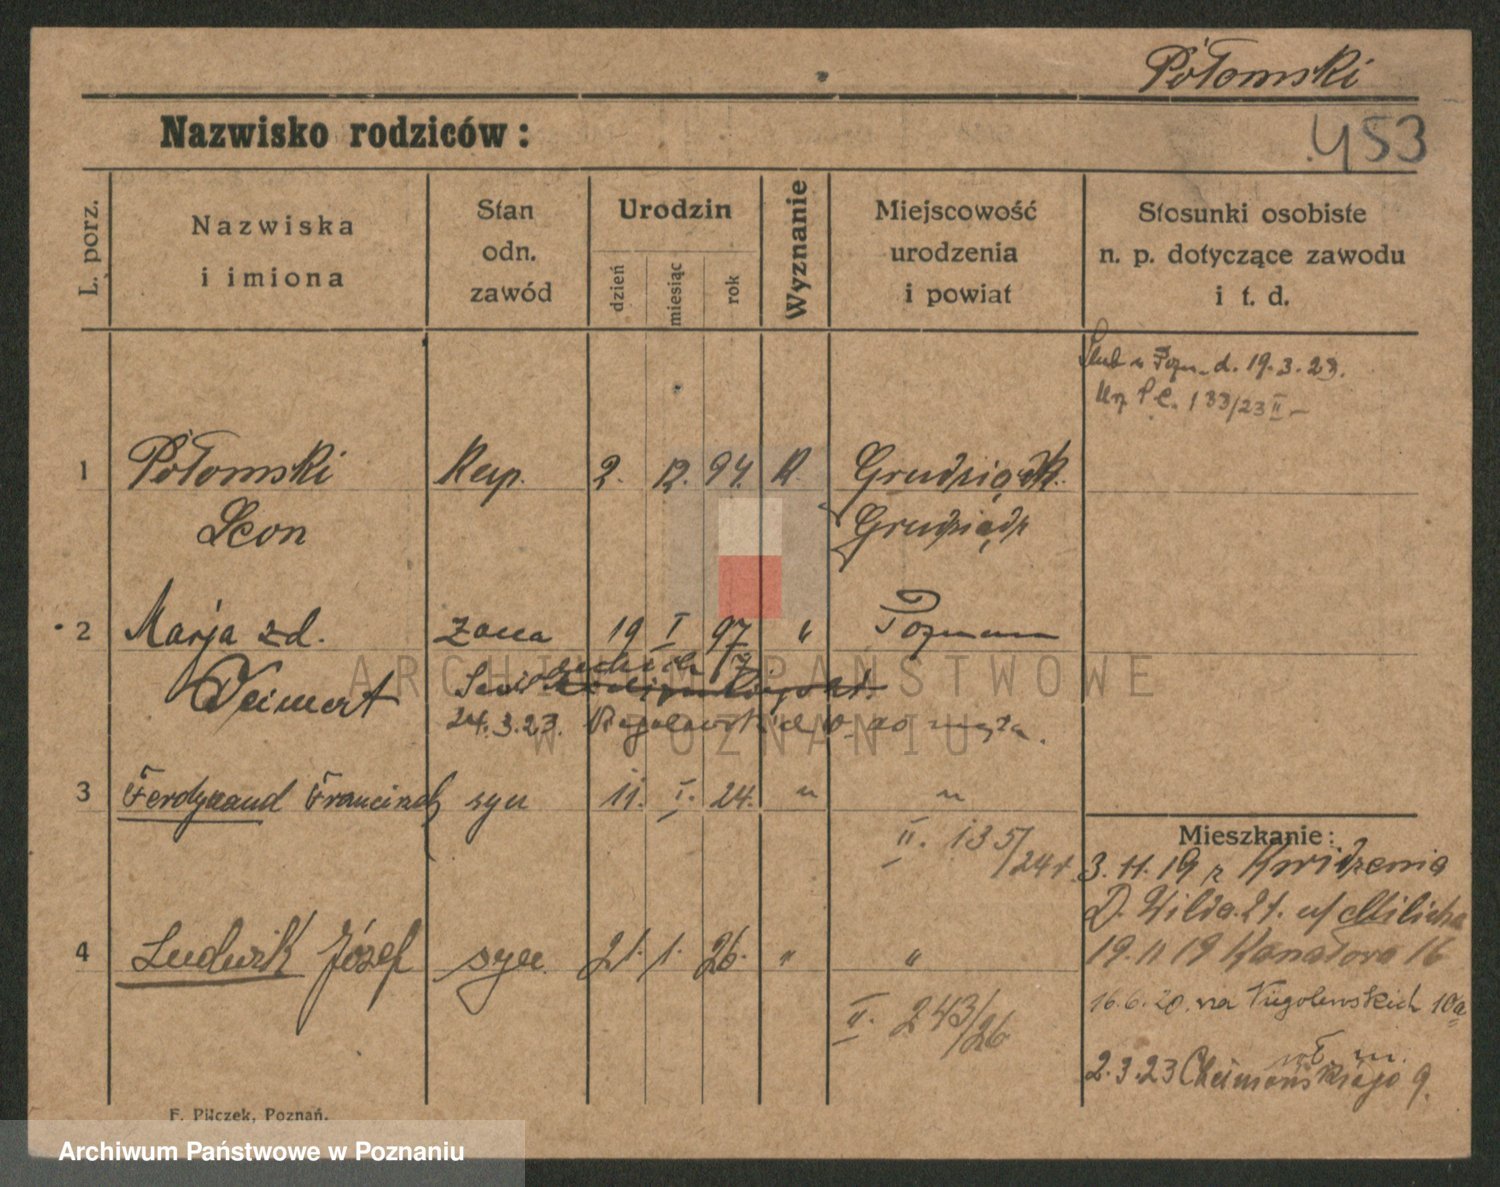 Połomski
Nazwisko rodziców:
453
L. porz.
Nazwiska
i imiona
Stan
odn.
zawód
Urodzin
dzień
miesiąc
rok
Wyznanie
Miejscowość
urodzenia
i powiat
Stosunki osobiste
n. p. dotyczące zawodu
i t. d.
Ślub w Pozn. d. 19.3.23.
Urz. S.C. 133/23 II
1 Połomski Kup. 2. 12. 94. R. Grudziądz.
Leon Grudziądz
2 Marja zd. żona 19 I 97 " Poznań
Deimert
24.3.23. w. do męża.
3 Ferdynand Franciszek syn 11. I. 24. " "
II. 135/24
4 Ludwik Józef syn 21. 1. 26. " "
II. 243/26
Mieszkanie:
3.11.19 z Kwidzenia
D. Wilda 21. u/ Milicha
19.11 19 Kanałowa 16
16.6.20. na Rugolewskich 10a
2.3.23 Chełmońskiego 9.
F. Pilczek, Poznań.
ARCHIWUM PAŃSTWOWE
W POZNANIU
Archiwum Państwowe w Poznaniu